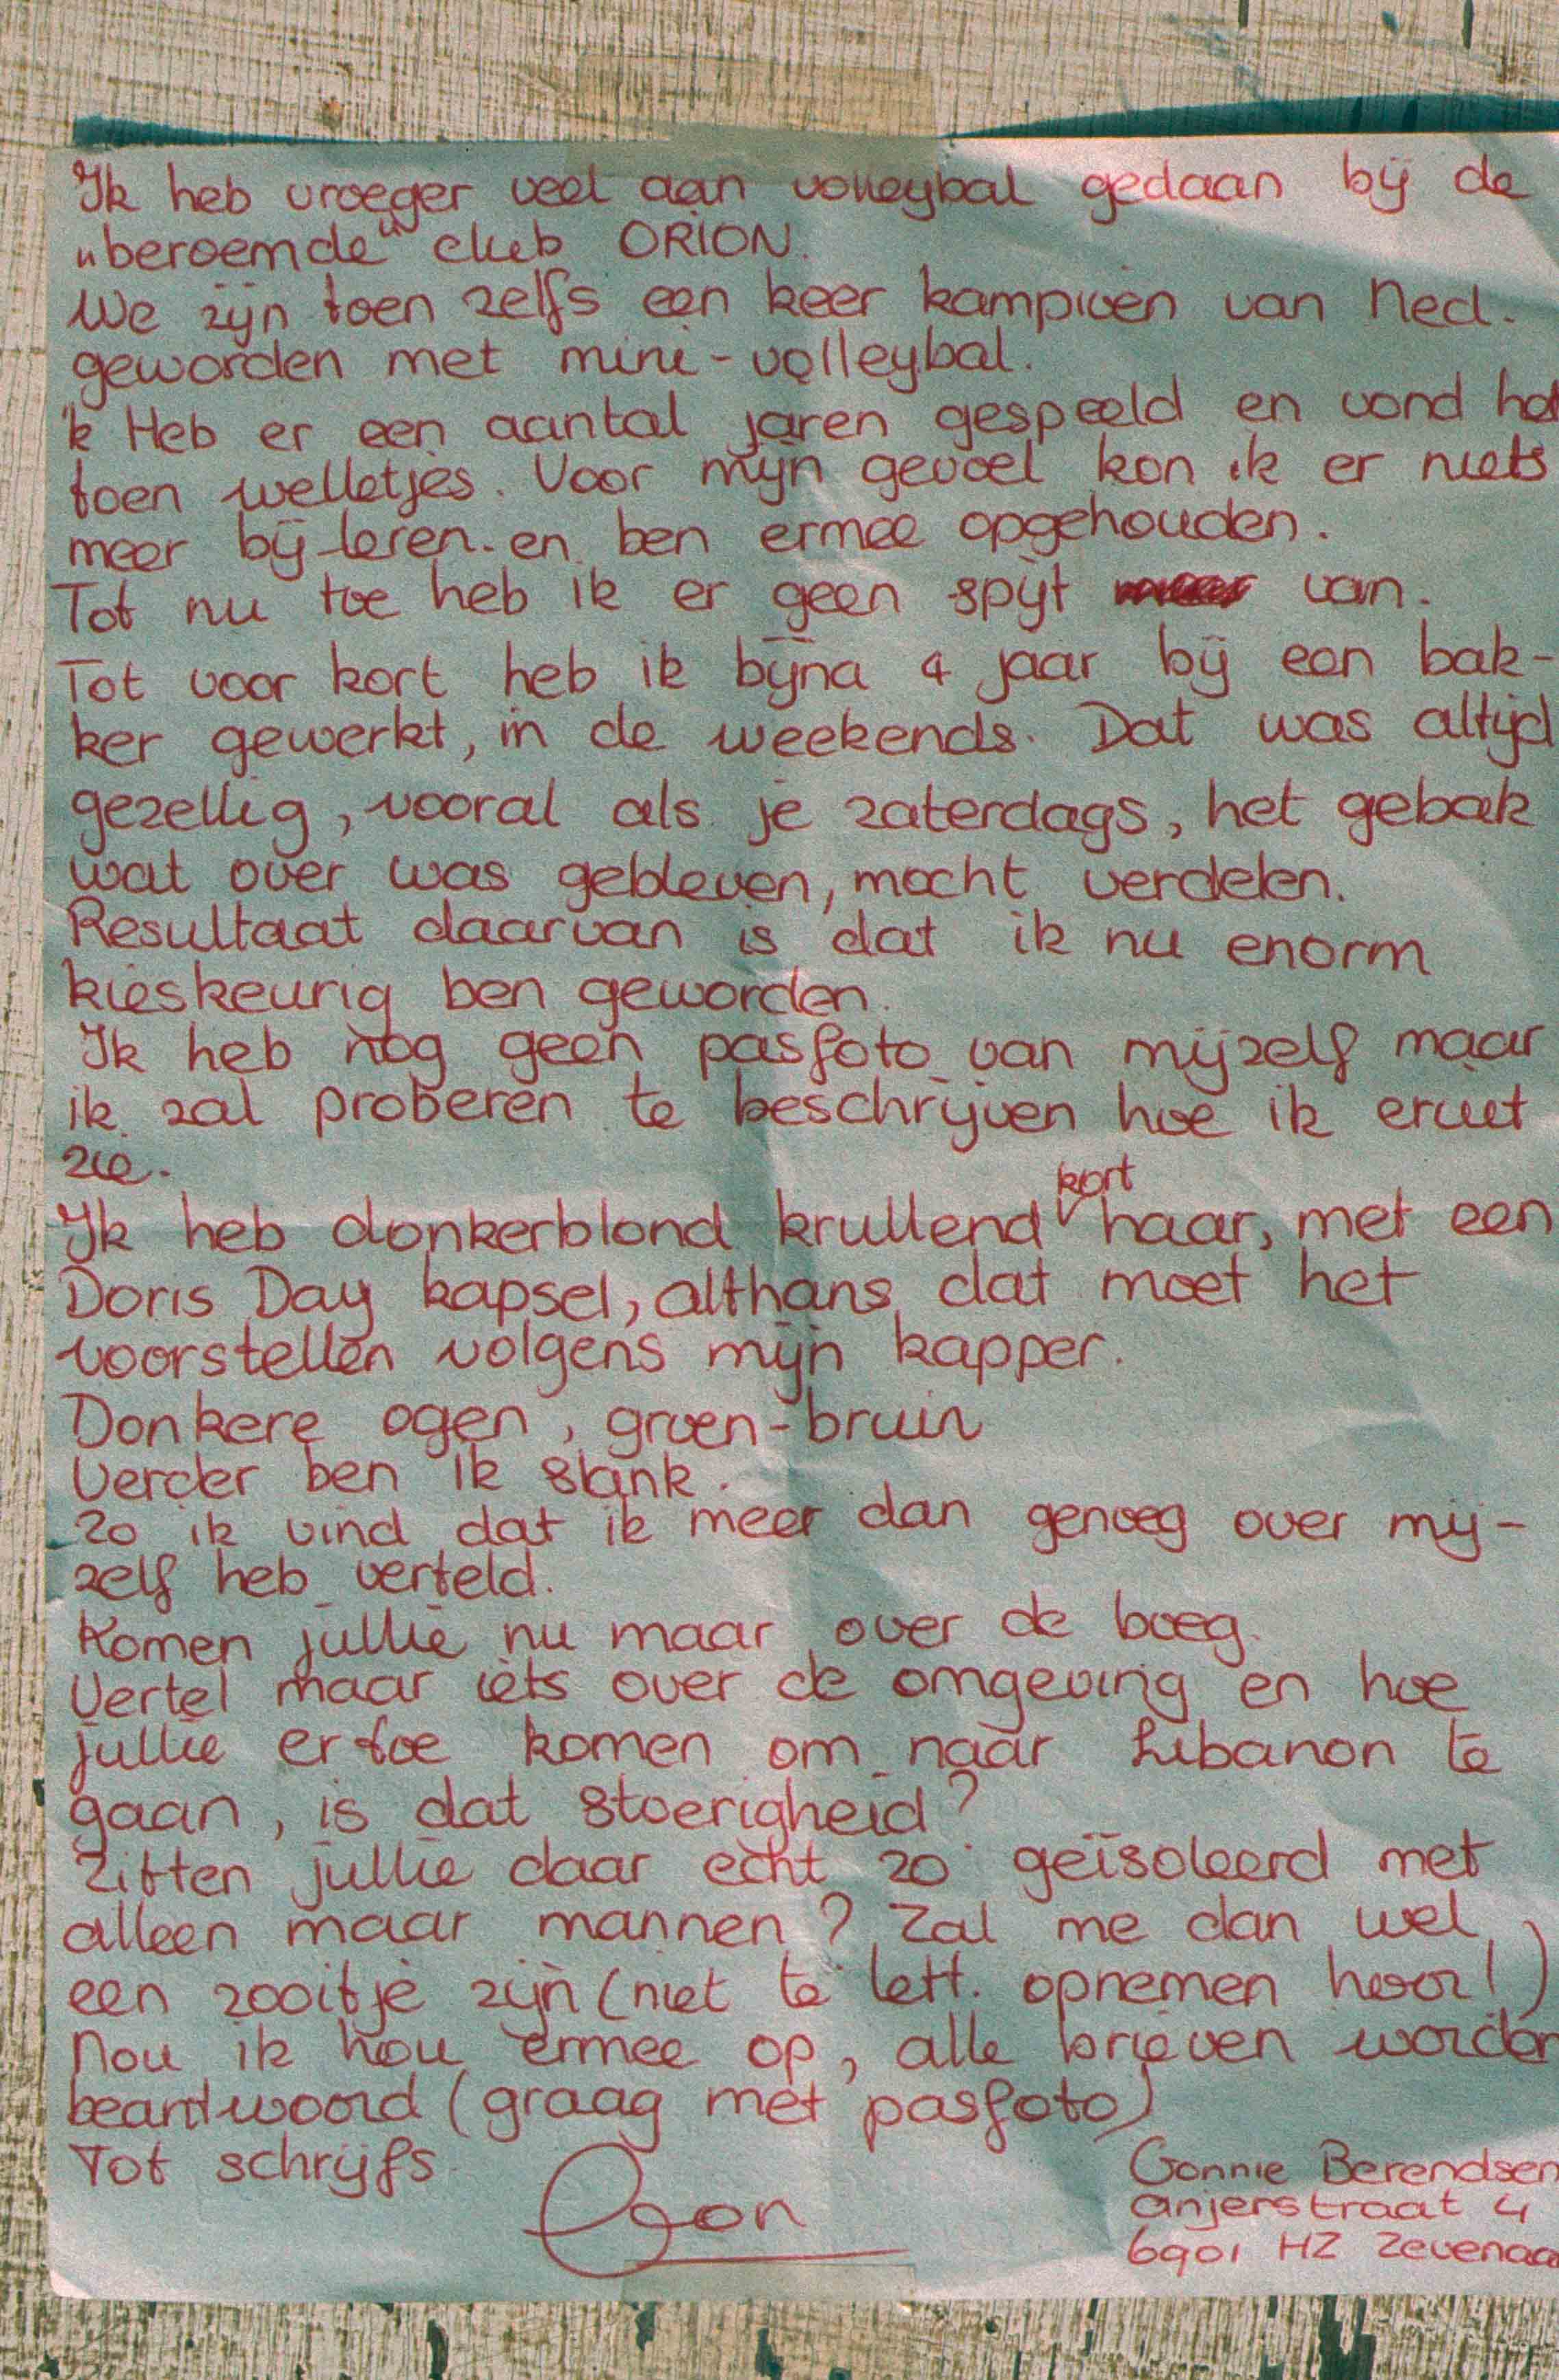 Ik heb vroeger veel aan volleybal gedaan bij de
„beroemde" club ORION.
We zijn toen zelfs een keer kampioen van Ned.
geworden met mini-volleybal.
'k Heb er een aantal jaren gespeeld en vond het
toen welletjes. Voor mijn gevoel kon ik er niets
meer bij leren en ben ermee opgehouden.
Tot nu toe heb ik er geen spijt van.
Tot voor kort heb ik bijna 4 jaar bij een bak-
ker gewerkt, in de weekends. Dat was altijd
gezellig, vooral als je zaterdags, het gebak
wat over was gebleven, mocht verdelen.
Resultaat daarvan is dat ik nu enorm
kieskeurig ben geworden.
Ik heb nog geen pasfoto van mijzelf maar
ik zal proberen te beschrijven hoe ik eruit
zie.
Ik heb donkerblond krullend kort haar, met een
Doris Day kapsel, althans dat moet het
voorstellen volgens mijn kapper.
Donkere ogen, groen-bruin
Verder ben ik slank.
Zo ik vind dat ik meer dan genoeg over mij-
zelf heb verteld.
Komen jullie nu maar over de boeg.
Vertel maar iets over de omgeving en hoe
jullie ertoe komen om naar Libanon te
gaan, is dat stoerigheid?
Zitten jullie daar echt zo geïsoleerd met
alleen maar mannen? Zal me dan wel
een zooitje zijn (niet te lett. opnemen hoor!)
Nou ik hou ermee op, alle brieven worden
beantwoord (graag met pasfoto)
Tot schrijfs.
Gon
Gonnie Berendsen
Anjerstraat 4
6901 HZ Zevenaa